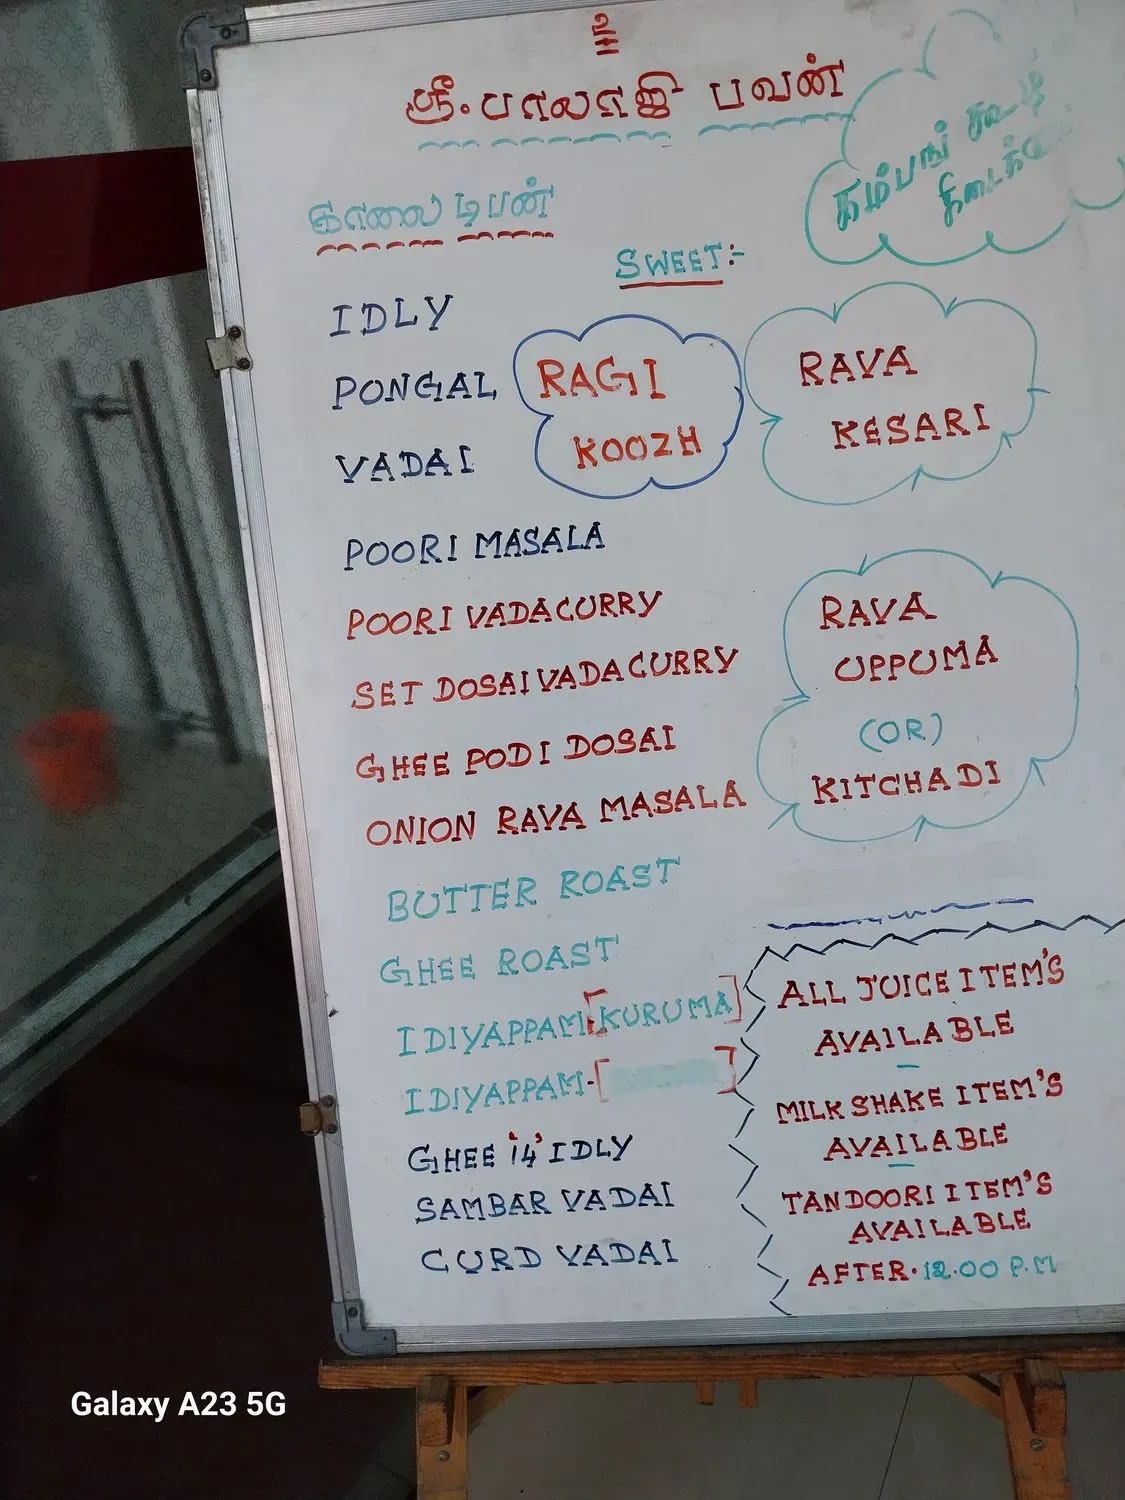 உ
ஸ்ரீ.பாலாஜி பவன்
கம்பங் கூழ்
காலை டிபன்
SWEET:-
IDLY
PONGAL
VADAI
RAGI
KOOZH
RAVA
KESARI
POORI MASALA
POORI VADACURRY
SET DOSAI VADACURRY
GHEE PODI DOSAI
ONION RAVA MASALA
RAVA
UPPUMA
(OR)
KITCHADI
BUTTER ROAST
GHEE ROAST
IDIYAPPAM-[KURUMA]
IDIYAPPAM-[ ]
GHEE '14' IDLY
SAMBAR VADAI
CURD VADAI
ALL JUICE ITEM'S
AVAILABLE
MILK SHAKE ITEM'S
AVAILABLE
TANDOORI ITEM'S
AVAILABLE
AFTER.12.00 P.M
Galaxy A23 5G